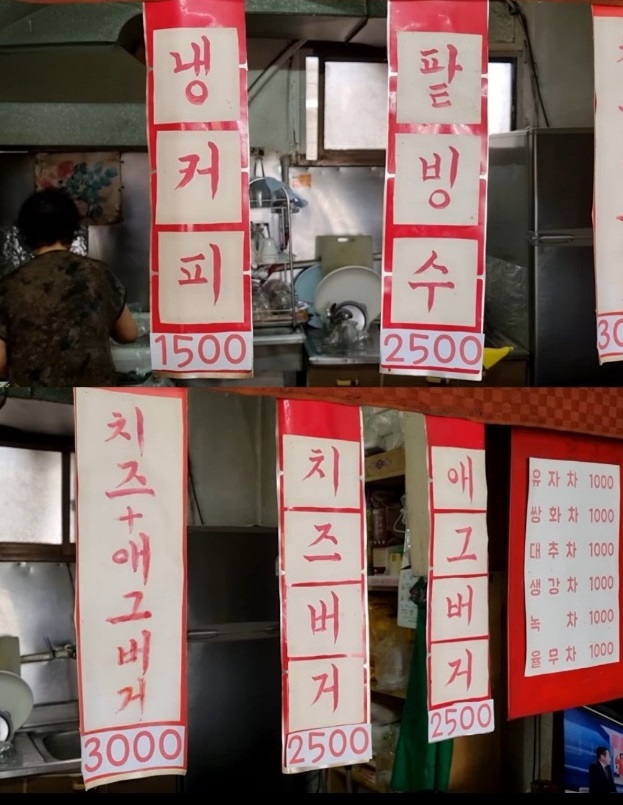 냉커피
1500
팥빙수
2500
30
치즈+애그버거
3000
치즈버거
2500
애그버거
2500
유자차 1000
쌍화차 1000
대추차 1000
생강차 1000
녹 차 1000
율무차 1000